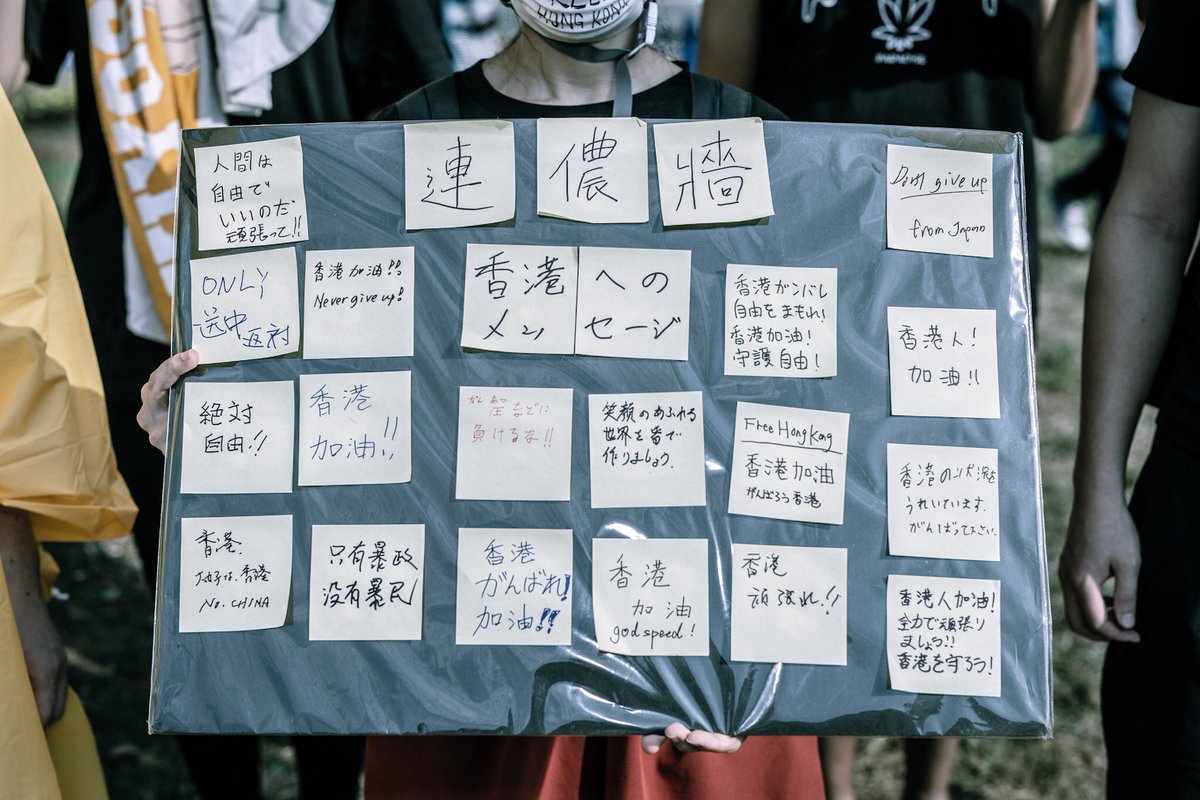 HONG KONG
人間は
自由で
いいのだ
頑張って!!
連
儂
牆
Don't give up
from Japan
ONLY
送中反対
香港加油!!
Never give up!
香港
メッ
への
セージ
香港ガンバレ
自由をまもれ!
香港加油!
守護自由!
香港人!
加油!!
絶対
自由!!
香港
加油!!
圧などに
負けるな!!
笑顔のあふれる
世界を皆で
作りましょう.
Free Hong Kong
香港加油
がんばろう香港
香港の状況を
うれいています.
がんばって下さい.
香港.
香港
No. CHINA
只有暴政
没有暴民
香港
がんばれ!
加油!!
香港
加油
god speed!
香港
頑張れ!!
香港人加油!
全力で頑張り
ましょう!!
香港を守ろう!